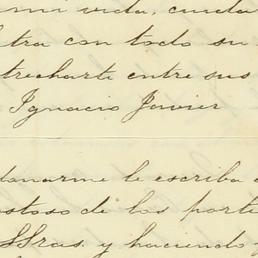 mi vida, cuida
tra con todo su
trecharte entre sus
Ignacio Javier
donarme le escriba
stoso de los porte
SSras y haciendo